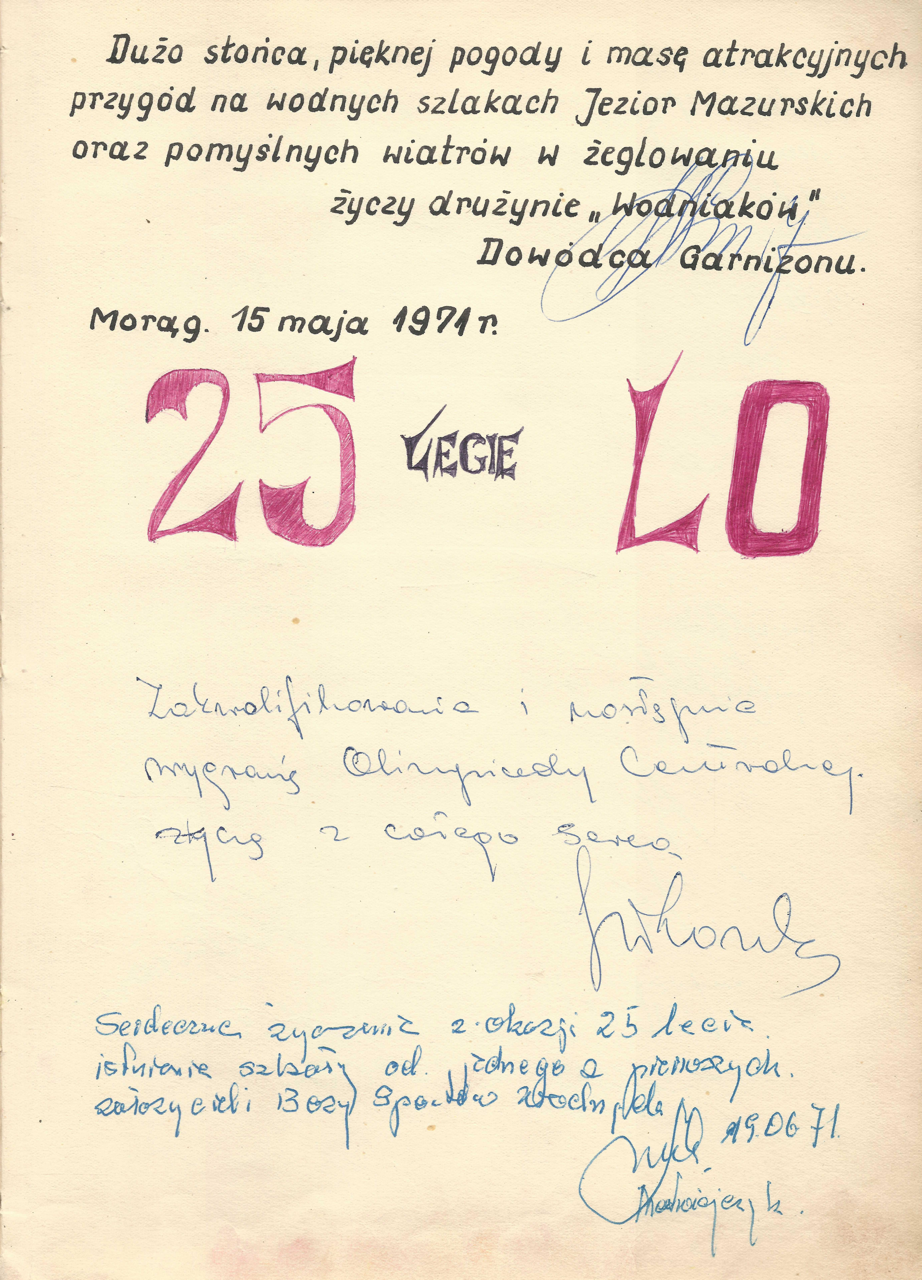 Dużo słońca, pięknej pogody i masę atrakcyjnych
przygód na wodnych szlakach Jezior Mazurskich
oraz pomyślnych wiatrów w żeglowaniu
życzy drużynie „Wodniaków"
Dowódca Garnizonu.
Morąg. 15 maja 1971 r.
25 LECIE LO
Zakwalifikowania i następnie
wygranie Olimpiady Centralnej
życzę z całego serca
Serdeczne życzenia z okazji 25 lecia
istnienia szkoły od jednego z pierwszych
założycieli Bazy Sportów Wodnych
19.06 71.